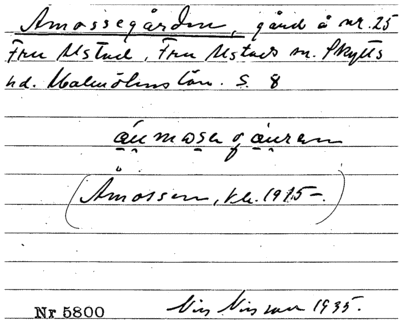 Åmossegården, gård å nr. 25
Fru Alstad, Fru Alstads sn. Skytts
hd. Malmöhus län. S. 8
(Åmossen, kl. 1915–.)
Nr 5800 Nils Nilsson 1935.